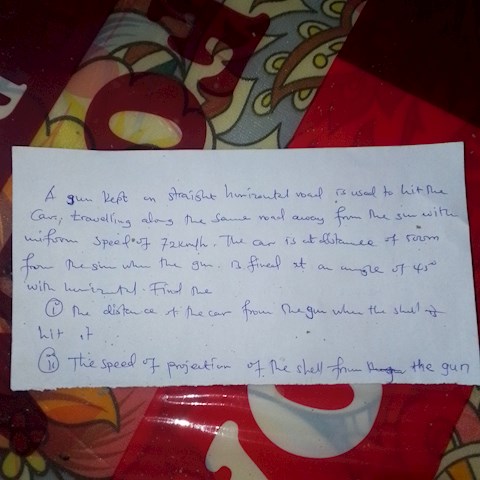 A gun kept on straight horizontal road is used to hit the
Car, travelling along the same road away from the gun with
uniform speed of 72km/h. The car is at distance of 500m
from the gun when the gun is fired at an angle of 45°
with horizontal. Find the
(i) the distance of the car from the gun when the shell
hit it
(ii) The speed of projection of the shell from the gun